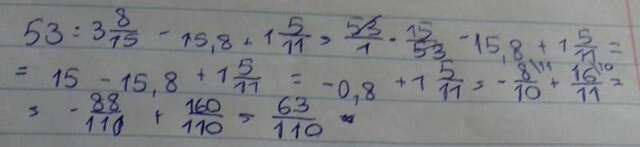 53 : 3 8/15 - 15,8 + 1 5/11 = 53/1 · 15/53 - 15,8 + 1 5/11 =
= 15 - 15,8 + 1 5/11 = -0,8 + 1 5/11 = - 8/10 \11 + 16/11 \10 =
= - 88/110 + 160/110 = 63/110